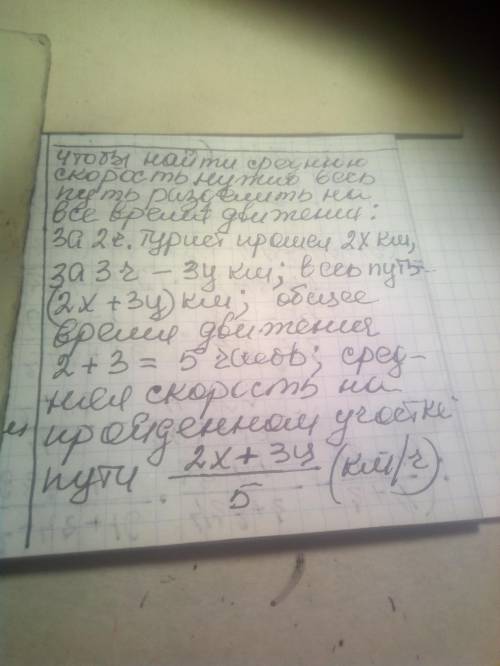 чтобы найти среднюю
скорость нужно весь
путь разделить на
все время движения:
За 2ч. турист прошел 2х км,
за 3 ч – 3у км; весь путь –
(2х + 3у) км; общее
время движения
2 + 3 = 5 часов; сред-
няя скорость на
пройденном участке
пути 2х + 3у / 5 (км/ч).